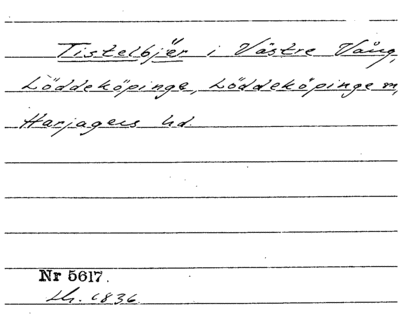 Tistelbjer i Västre Vång,
Löddeköpinge, Löddeköpinge m,
Harjagers hd
Nr 5617.
Lh. 1836